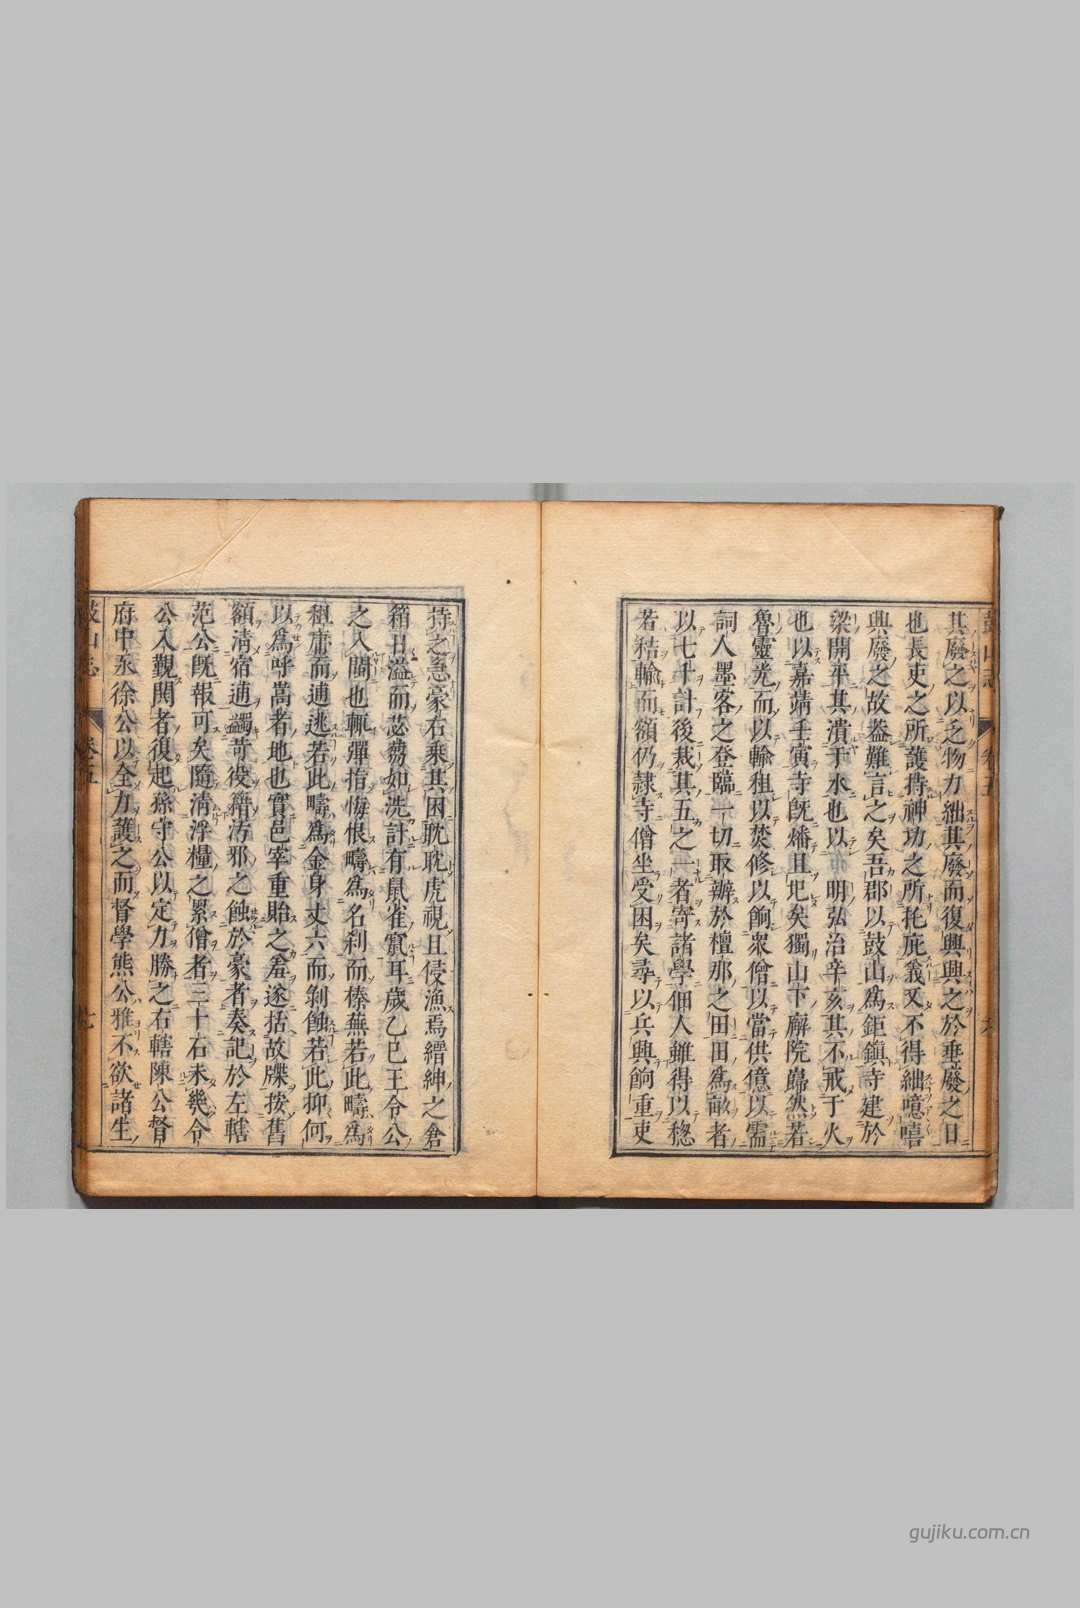 其廢之以乏物力絀其廢而復興興之於垂廢之日
也長吏之所護持神功之所托庇義又不得絀噫嘻
興廢之故葢難言之矣吾郡以鼓山爲鉅鎮寺建於
梁開平其潰于水也以 明弘治辛亥其不戒于火
也以嘉靖壬寅寺旣燔且圯矣獨山下廨院巋然若
魯靈光而以輸租以焚修以餉眾僧以當供億以需
詞人墨客之登臨一切取辦於檀那之田田爲畝者
以七千計後裁其五之一者寄諸學佃人雖得以稔
若秸輸而額仍隷寺僧坐受困矣尋以兵興餉重吏
持之急豪右乘其困耽耽虎視且侵漁焉縉紳之倉
箱日溢而苾蒭如洗計有鼠雀竄耳歲乙巳王令公
之入閩也輒彈指悔恨疇爲名刹而榛蕪若此疇爲
租庸而逋逃若此疇爲金身丈六而剝蝕若此抑何
以爲呼嵩者地也實邑宰重貽之羞遂括故牒按舊
額清宿逋蠲苛役籍汚邪之蝕於豪者奏記於左轄
范公旣報可矣隨清浮糧之累僧者三十石未幾令
公入覲閱者復起孫守公以定力勝之右轄陳公督
府中丞徐公以全力護之而督學熊公雅不欲諸生
鼓山志 卷五 六
鼓山志 卷五 七
gujiku.com.cn